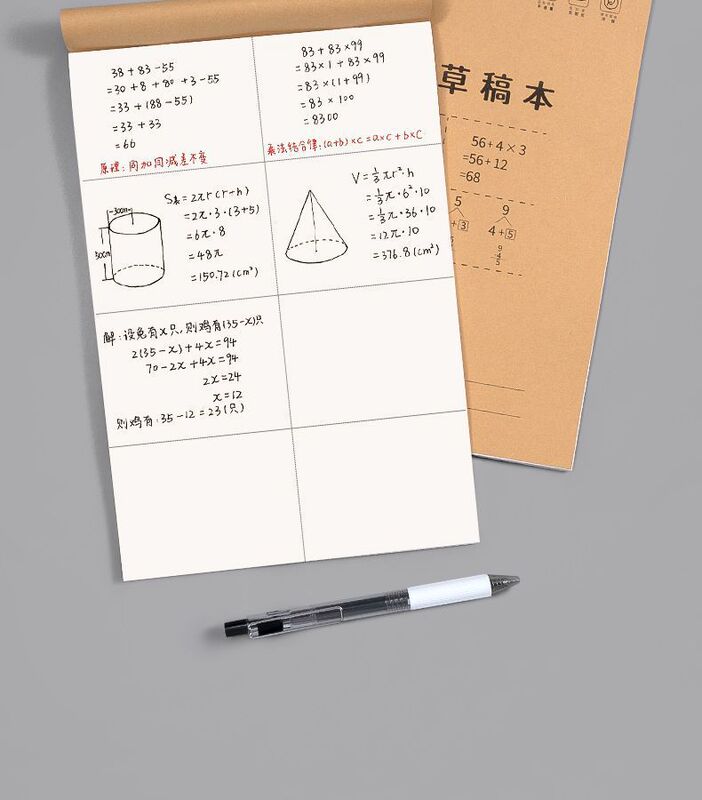 38+83-55
=30+8+80+3-55
=33+(88-55)
=33+33
=66
原理:同加同减差不变
83+83×99
=83×1+83×99
=83×(1+99)
=83×100
=8300
乘法结合律:(a+b)×c=a×c+b×c
S表=2πr(r+h)
=2π·3·(3+5)
=6π·8
=48π
=150.72(cm²)
V=⅓πr²·h
=⅓π·6²·10
=⅓π·36·10
=12π·10
=376.8(cm²)
解:设兔有x只,则鸡有(35-x)只
2(35-x)+4x=94
70-2x+4x=94
2x=24
x=12
则鸡有:35-12=23(只)
草稿本
56+4×3
=56+12
=68
5
+3
9
4+5
9
-4
5